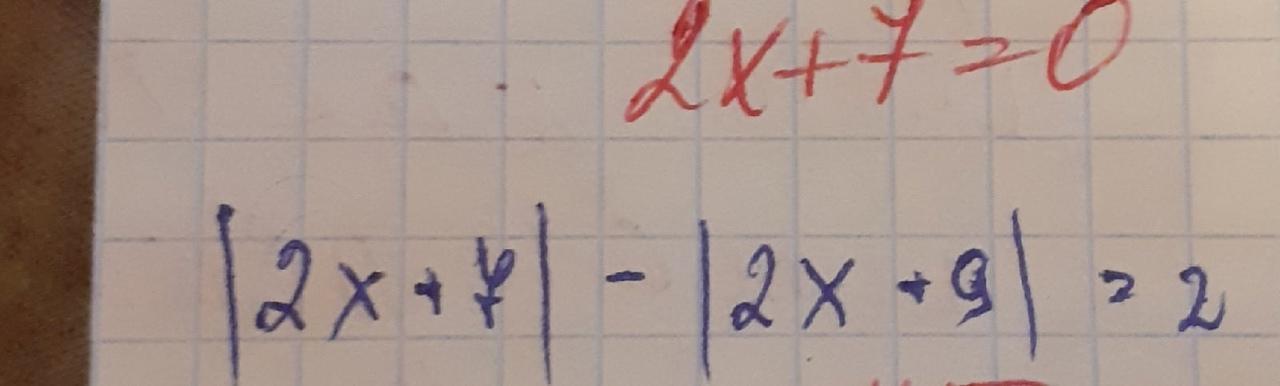 2x+7=0
|2x+7|-|2x+9|=2